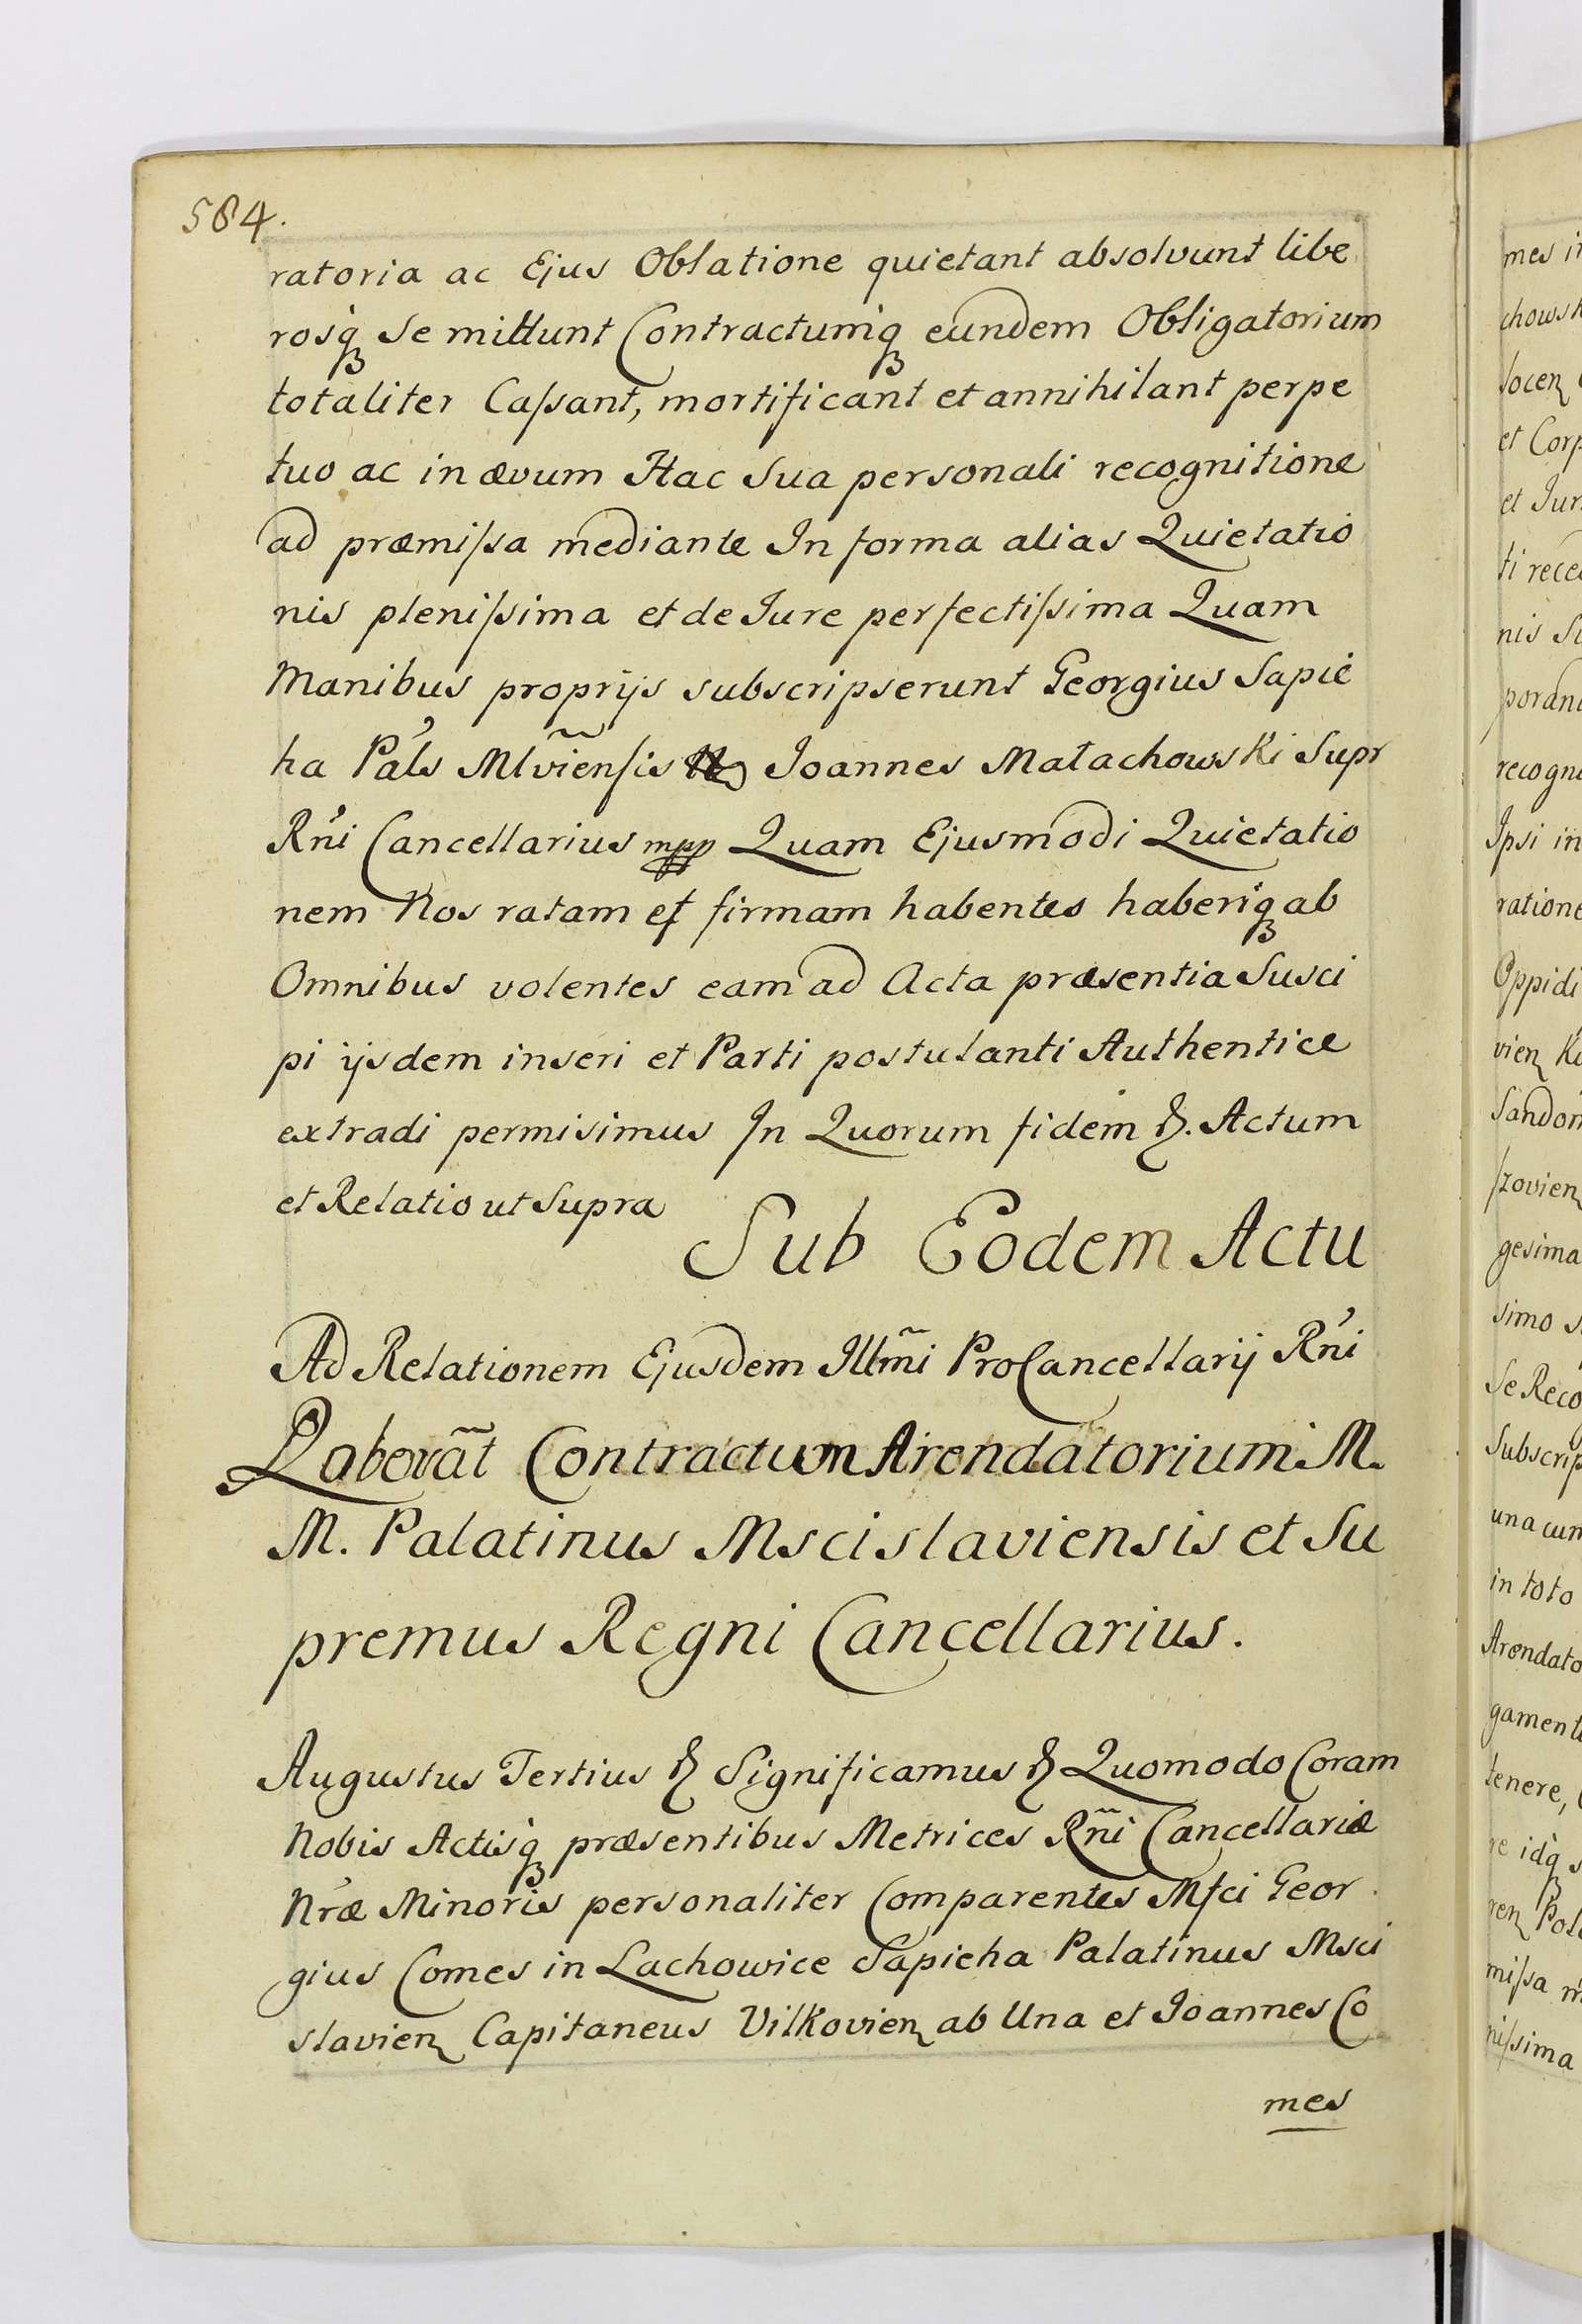 584.
ratoria ac Ejus Oblatione quietant absolvunt libe
rosq́ꝫ Se mittunt Contractumq́ꝫ eundem Obligatorium
totaliter Caſsant, mortificant et annihilant perpe
tuo ac in ævum Hac Sua personali recognitione
ad præmiſsa mediante In forma alias Quietatio
nis pleniſsima et de Iure perfectiſsima Quam
Manibus proprijs subscripserunt Georgius Sapie
ha Pal̃s Mlviẽnſis Joannes Małachowski Supr
Rñi Cancellarius mpp Quam Ejusmodi Quietatio
nem Nos ratam et firmam habentes haberiq́ꝫ ab
Omnibus volentes eam ad Acta præsentia Susci
pi ijsdem inseri et Parti postulanti Authentice
extradi permisimus In Quorum fidem &. Actum
et Relatio ut Supra
Sub Eodem Actu
Ad Relationem Ejusdem Illm̃i ProCancellarij Rñi
Roborãt Contractum Arendatorium M.
M. Palatinus Mscislaviensis et Su
premus Regni Cancellarius.
Augustus Tertius & Significamus & Quomodo Coram
Nobis Actisq́ꝫ præsentibus Metrices Rñi Cancellariæ
Nræ Minoris personaliter Comparentes Mfci Geor
gius Comes in Lachowice Sapieha Palatinus Msci
slavien Capitaneus Vilkovien ab Una et Joannes Co
mes
mes i
chowsk
et Corp
et Jur
ti rece
recogn
Ipsi in
ratione
Oppidi
gesima
simo s
Se Reco
Subscrip
una cum
in toto
Arendato
gament
tenere,
miſsa
niſsima